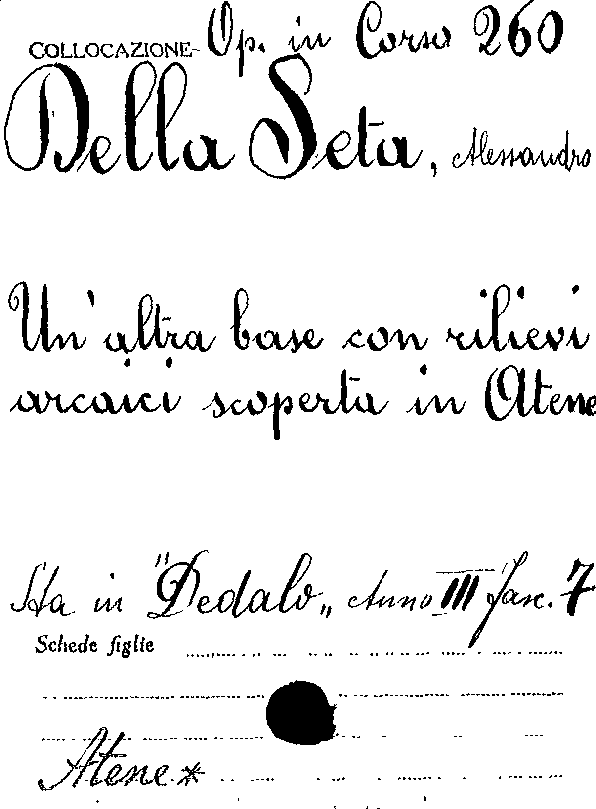 COLLOCAZIONE- Op. in Corso 260
Della Seta, Alessandro
Un'altra base con rilievi
arcaici scoperta in Atene
Sta in "Dedalo„ Anno III fasc. 7
Schede figlie
Atene*